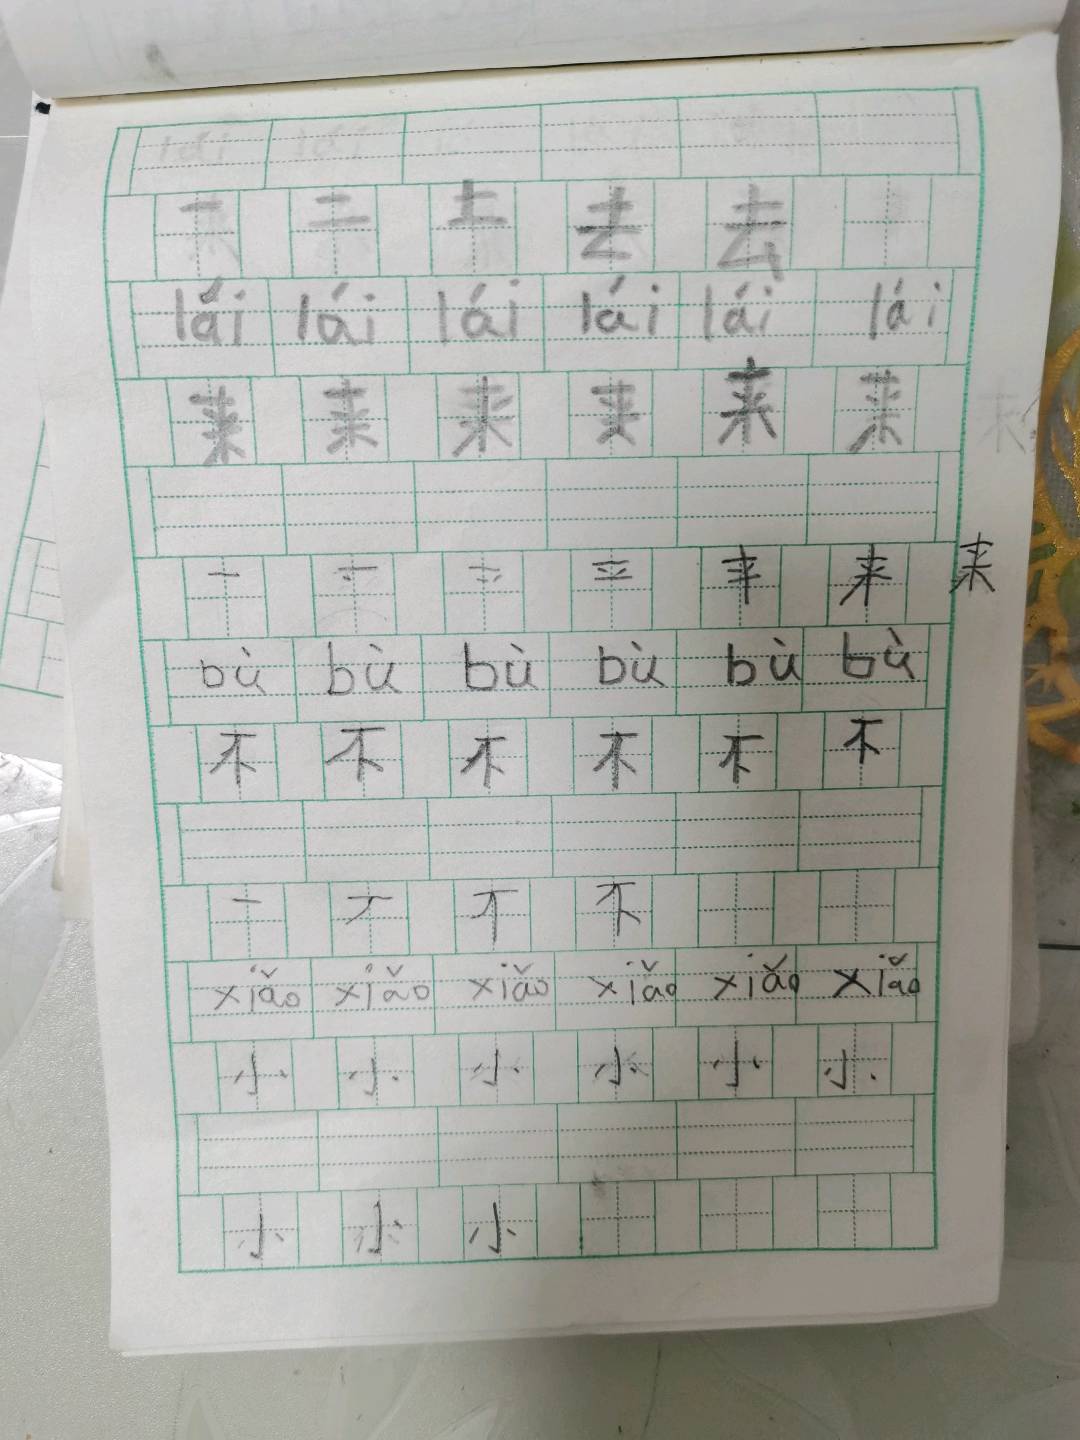 一 二 土 去 去
lái lái lái lái lái lái
来 来 来 来 来 来
一 来 来
bù bù bù bù bù bù
不 不 不 不 不 不
一 丆 不
xiǎo xiǎo xiǎo xiǎo xiǎo xiǎo
小 小 小 小 小 小
小 小 小